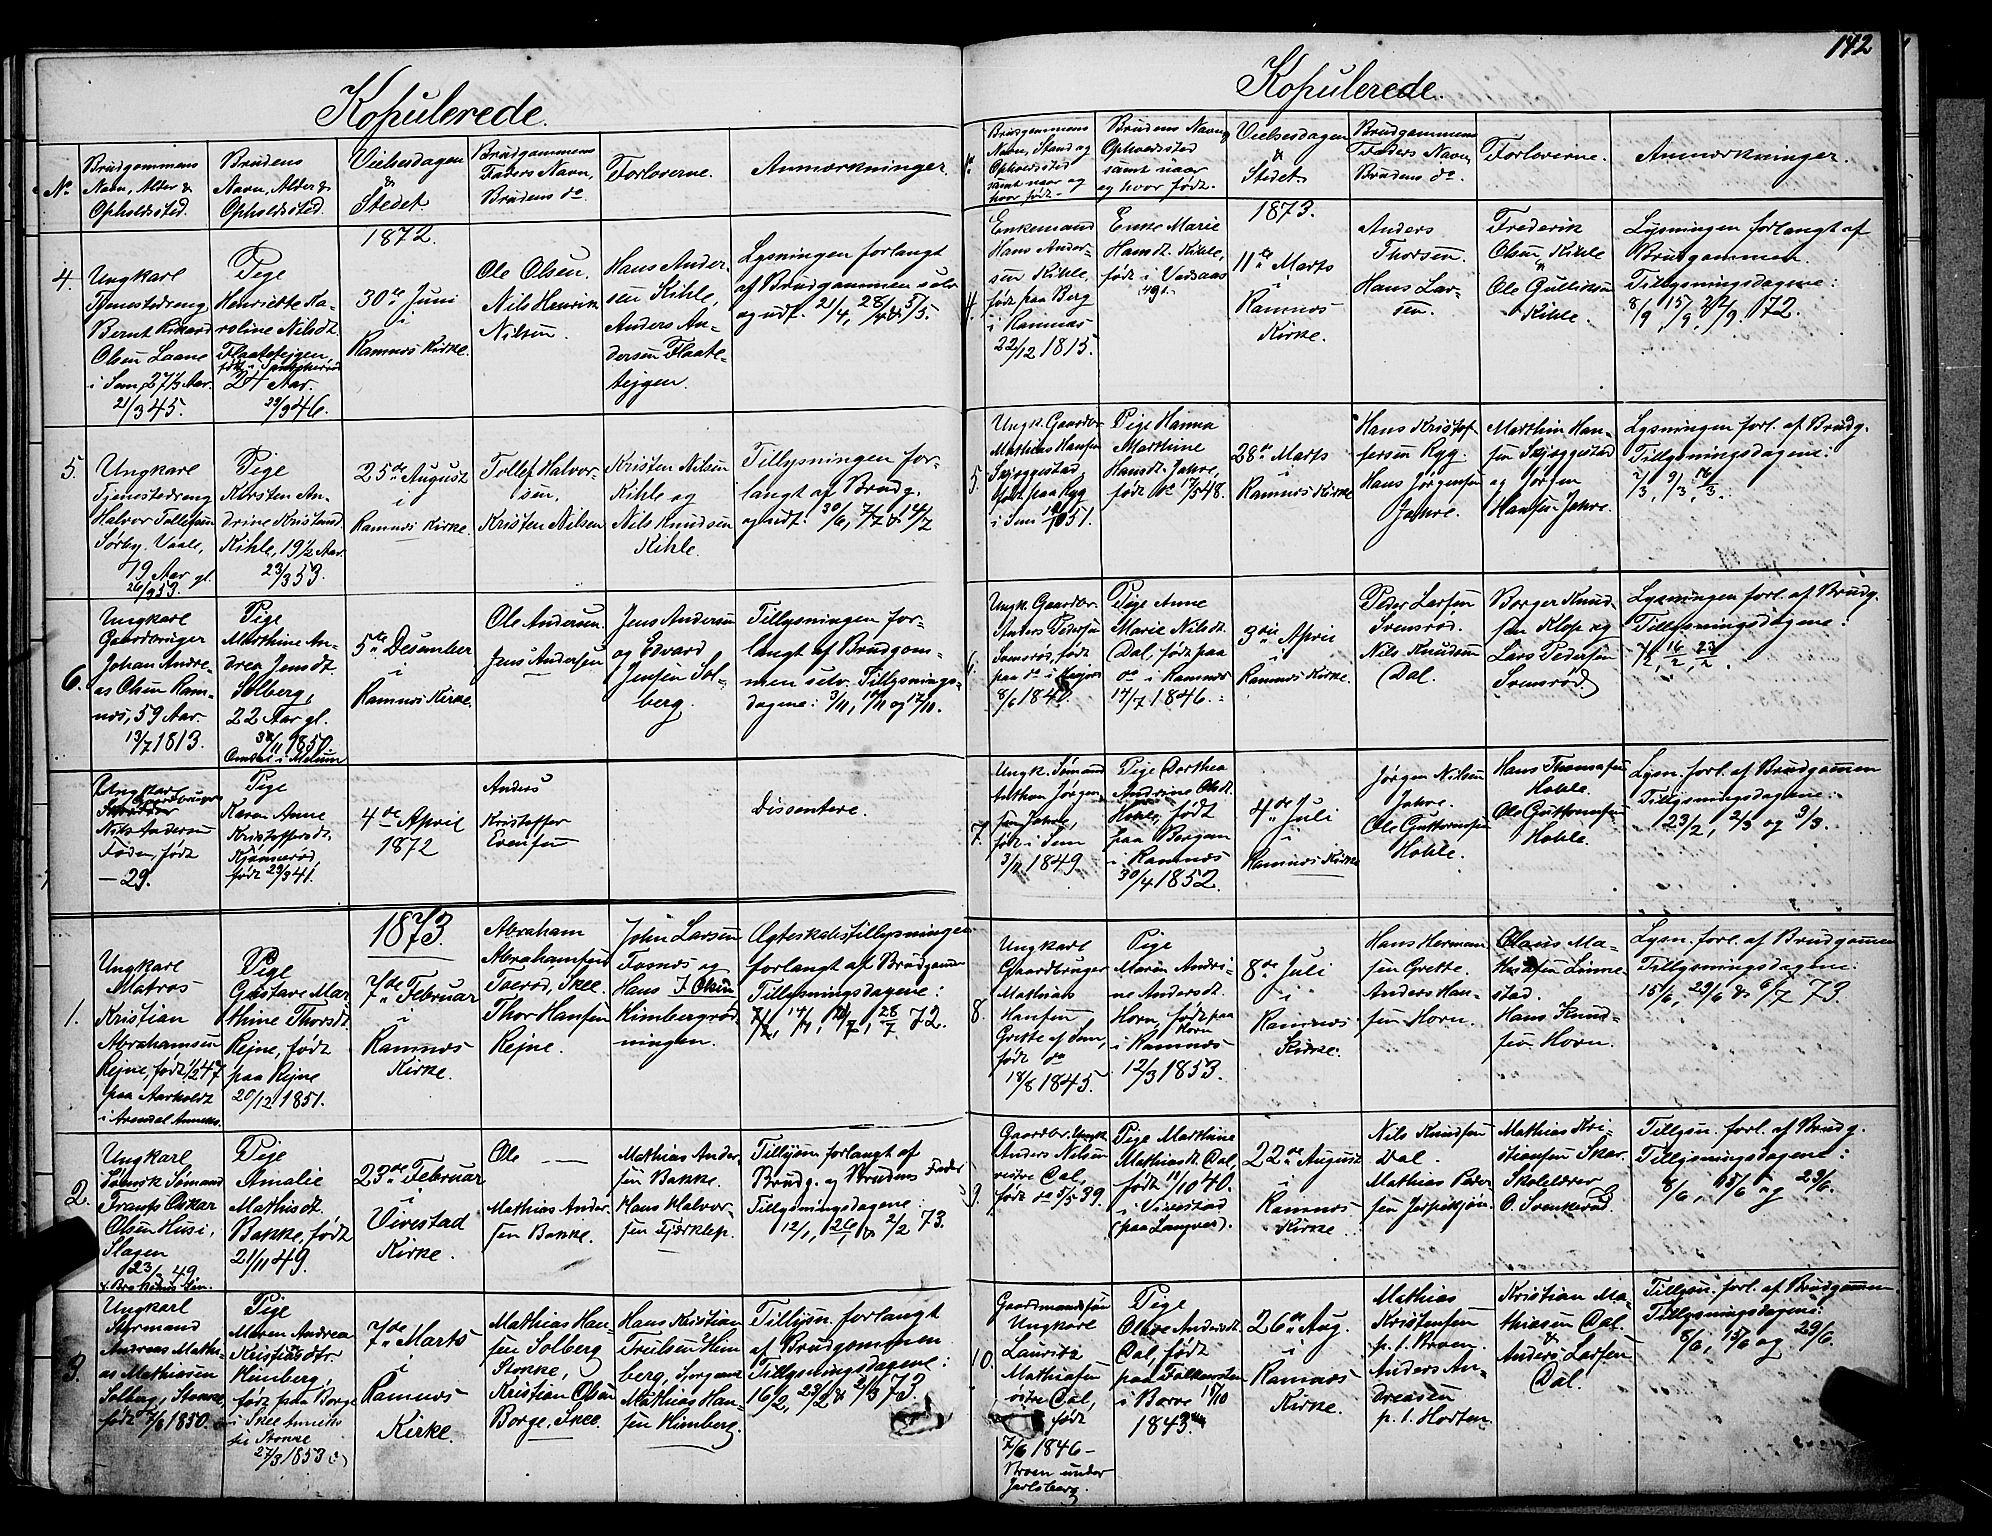 Kopulerede.
No
Brudgommens
Navn, Alter &
Opholdssted.
Brudens
Navn, Alder &
Opholdssted.
Vielsesdagen
&
Stedet.
Brudgommens
Faders Navn,
Brudens do
Forloverne.
Anmærkninger.
1872.
4.
Ungkarl
Tjenestedreng
Bernt Rikard
Olsen Laane
i Sem, 27 1/3 Aar.
21/3 45.
Pige
Henriette Ka-
roline Nilsdt.
Flaatetejgen,
24 Aar.
29/9 46.
30te Juni
i
Ramnæs Kirke.
Ole Olsen.
Nils Henrik
Nilsen.
Hans Ander-
sen Kihle,
Anders An-
dersen Flaate-
tejgen.
Lysningen forlangt
af Brudgommen selv
og udf. 21/4, 28/4 & 5/5.
5.
Ungkarl
Tjenestedreng
Halvor Tollefsen
Sørby. Vaale,
19 Aar gl.
26/9 53.
Pige
Kirsten An-
drine Kristensd.
Kihle, 19 1/2 Aar.
23/3 53.
25de August
i
Ramnæs Kirke.
Tollef Halvor-
sen,
Kristen Nilsen
Kristen Nilsen
Kihle og
Nils Knudsen
Kihle.
Tillysningen for-
langt af Brudg.
og udf. 30/6, 7/7 & 14/7
6.
Ungkarl
Gaardbruger
Johan Andre-
as Olsen Ram-
næs, 59 Aar.
13/7 1813.
Pige
Marthine An-
drea Jensdt.
Solberg,
22 Aar gl.
30/11 1850.
5te Desember
i
Ramnæs Kirke.
Ole Andersen.
Jens Andersen
Jens Andersen
og Edvard
Jensen Sol-
berg.
Tillysningen for-
langt af Brudgom-
men selv. Tillysnings-
dagene: 3/11, 10/11 og 17/11.
Ungkarl
Gaardbruger
Nils Andersen
Foden, født
— 29.
Pige
Karen Anne
Kristoffersdt.
Kjønnerød,
født 29/3 41.
4de April
1872
Anders
Kristoffer
Evensen
Dissentere.
1873.
1.
Ungkarl
Matros
Kristian
Abrahamsen
Rejne, født 1/2 47
paa Aarholdt
i Arendal Anneks.
Pige
Gustave Mar-
thine Thorsdt.
Rejne, født
paa Rejne
20/12 1851.
7de Februar
i
Ramnæs
Kirke.
Abraham
Abrahamsen
Foerød, Skee.
Thor Hansen
Rejne.
John Larsen
Fosnæs og
Hans J Olsen
Himbergrød-
ningen.
Ægteskabstillysningen
forlangt af Brudgommen
Tillysningsdagene:
7/7, 14/7, 21/7, 28/7 72.
2.
Ungkarl
Svensk Sømand
Frants Oskar
Olsen Husi,
Slagen
Pige
Amalie
Mathisdt.
Bakke, født
21/11 49.
23de Februar
i
Vivestad
Kirke.
Ole —
Mathias Ander-
sen Bakke.
Mathias Ander-
sen Bakke.
Hans Halvor-
sen Fjærklep.
Tillysn. forlangt af
Brudg. og Brudens Fader
Tillysningsdagene:
12/1, 26/1 & 2/2 73.
3.
Ungkarl
Styrmand
Andreas Mathi-
as Mathiasen
Solberg, Stokke,
født 7/6 1850.
Pige
Maren Andrea
Kristiansdtr.
Himberg,
født paa Borge
i Skee Anneks
til Stokke
27/3 1853
7de Marts
i
Ramnæs
Kirke.
Mathias Han-
sen Solberg
Stokke,
Kristian Olsen
Borge, Skee.
Hans Kristian
Trulsen Him-
berg,
Mathias Han-
sen Himberg.
Tillysn. forlangt
af Brudgommen
Tillysningsdagene:
16/2, 23/2 & 2/3 73.
142
Kopulerede.
No
Brudgommens
Navn, Stand og
Opholdssted
samt naar og
hvor født.
Brudens Navn,
Opholdssted
samt naar
og hvor født.
Vielsesdagen
&
Stedet.
Brudgommens
Faders Navn,
Brudens do.
Forloverne.
Anmærkninger.
1873.
4.
Enkemand
Hans Ander-
sen Kihle,
født paa Berg
i Ramnæs
22/12 1815.
Enke Marie
Hansdt. Kihle,
født i Vadsaas
11te Marts
i
Ramnæs
Kirke.
Anders
Thorsen.
Hans Lar-
sen.
Frederik
Olsen Kihle
&
Ole Gulliksen
Kihle.
Lysningen forlangt af
Brudgommen.
Tillysningsdagene:
8/9, 15/9, 22/9. 172.
5.
Ungk. Gaardbr.
Mathias Hansen
Skjeggestad,
født paa Ryg
i Sem 12/10 51.
Pige Hanna
Marthine
Hansdt. Jahre,
født do 17/5 48.
28de Marts
i
Ramnæs Kirke
Hans Kristof-
fersen Ryg.
Hans Jørgensen
Jahre.
Marthin Han-
sen Skjeggestad
og Jørgen
Hansen Jahre.
Lysningen forl. af Brudg.
Tillysningsdagene:
2/3, 9/3, 16/3.
6.
Ungk. Gaardbr.
Anders Pedersen
Svensrød, født
paa do i
8/6 1840.
Pige Anne
Marie Nilsdt.
Dal, født paa
do i Ramnæs
14/7 1846.
3die April
i
Ramnæs Kirke.
Peder Larsen
Svensrød.
Nils Knudsen
Dal.
Borger Knud-
sen Klop og
Lars Pedersen
Svensrød.
Lysningen forl. af Brudg.
Tillysningsdagene:
9/2, 16/2, 23/2
7.
Ungk. Sømand
Anthon Jørgen-
sen Jahre,
født i Sem
3/11 1849
Pige Dorthea
Andrine Olsdt.
Hohle, født
paa Bergan
i Ramnæs
30/4 1852.
4de Juli
i
Ramnæs Kirke
Jørgen Nilsen
Jahre.
Ole Guttormsen
Hohle.
Hans Thomasen
Hohle.
Ole Guttormsen
Hohle.
Lysn. forl. af Brudgommen
Tillysningsdagene:
23/2, 2/3 og 9/3.
8.
Ungkarl
Gaardbruger
Mathias
Hansen
Grette af Sem,
født do
18/8 1845.
Pige
Maren Andri-
ne Andersdt.
Horn, født paa
Horn
i Ramnæs
12/3 1853.
8de Juli
i
Ramnæs
Kirke.
Hans Herman-
sen Grette.
Anders Han-
sen Horn.
Olaus Ma-
thiasen Linne-
stad.
Hans Knud-
sen Horn.
Lysn. forl. af Brudgommen
Tillysningsdagene:
15/6, 29/6 & 6/7 73.
9.
Gaardbr. Ungk.
Anders Nilsen
vestre Dal,
født do 5/5 39.
Pige Marthine
Mathiasdt. Dal,
født 11/10 40.
i Vivestad
(paa Langves).
22de August
i
Ramnæs
Kirke.
Nils Knudsen
Dal.
Mathias Peder-
sen Jerpekjøn.
Mathias Kri-
stiansen Skar.
Skolelærer
O. Svenkerud.
Tillysn. forl. af Brudg.
Tillysningsdagene:
8/6, 15/6 og 29/6.
10.
Gaardmandssøn
Ungkarl
Lauritz
Mathiasen
østre Dal,
født
7/6 1846 —
Broen under
Jarlsberg.
Pige
Olave Andersdt.
Dal, født
paa Falkensten
i Borre 15/10
1843.
26de Aug.
i
Ramnæs
Kirke.
Mathias
Kristensen
p. t. Broen.
Anders An-
dreasen
p. t. Horten.
Kristian Ma-
thiasen Dal.
&
Anders Larsen
Dal.
Tillysn. forl. af Brudgommen
Tillysningsdagene:
8/6, 15/6 og 29/6.